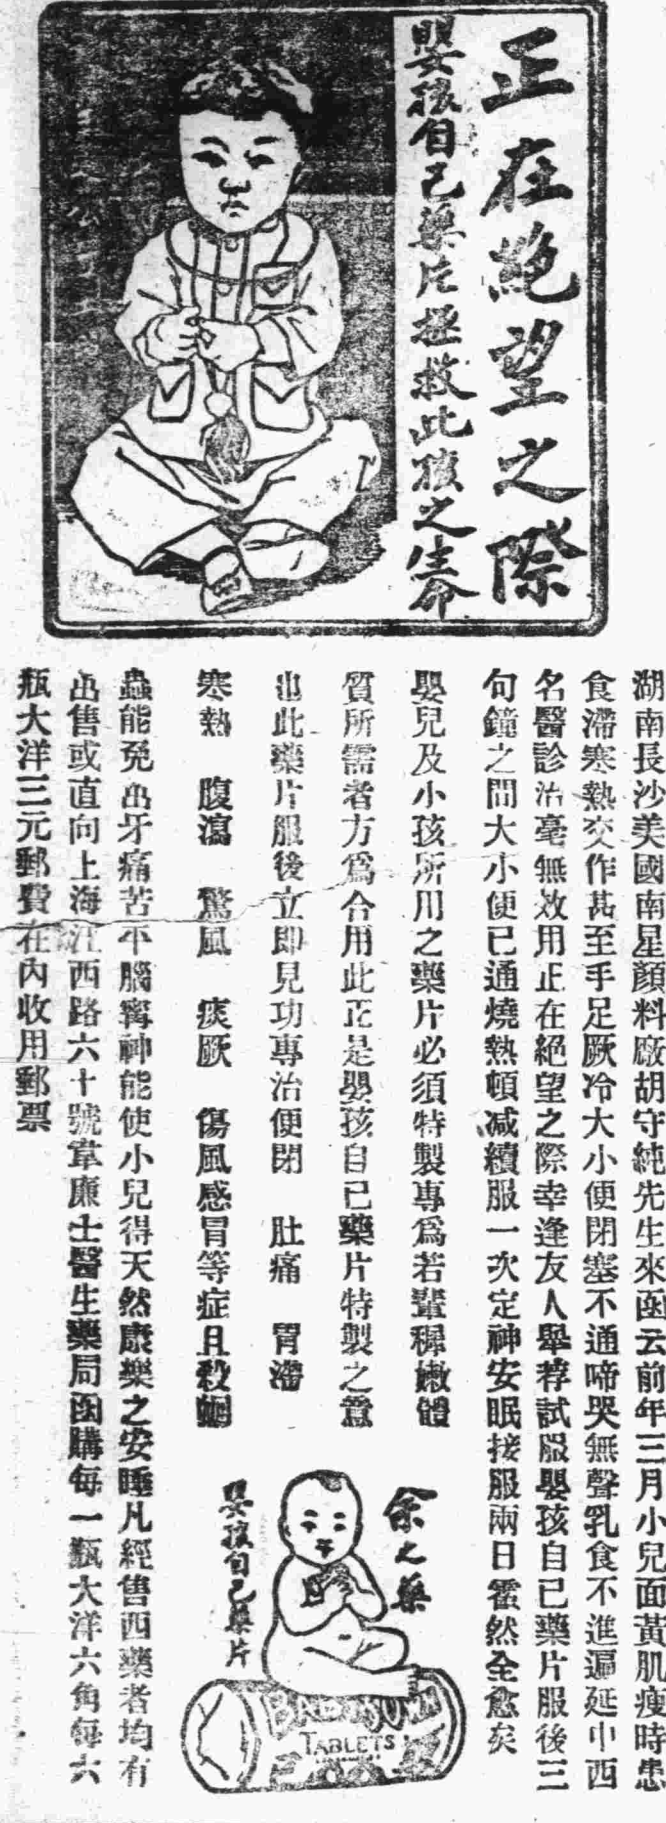 正在絶望之際
嬰孩自己藥片拯救此孩之生命
湖南長沙美國南星顔料廠胡守純先生來函云前年三月小兒面黃肌瘦時患
食滯寒熱交作甚至手足厥冷大小便閉塞不通啼哭無聲乳食不進遍延中西
名醫診治毫無效用正在絶望之際幸逢友人舉荐試服嬰孩自己藥片服後三
句鐘之間大小便已通燒熱頓减續服一次定神安眠接服兩日霍然全愈矣
嬰兒及小孩所用之藥片必須特製專爲若輩穉嫩體
質所需者方爲合用此正是嬰孩自己藥片特製之意
也此藥片服後立即見功專治便閉 肚痛 胃滯
寒熱 腹瀉 驚風 痰厥 傷風感冒等症且殺蛔
蟲能免出牙痛苦平腦寗神能使小兒得天然康樂之安睡凡經售西藥者均有
出售或直向上海江西路六十號韋廉士醫生藥局函購每一瓶大洋六角每六
瓶大洋三元郵費在內收用郵票
余之藥
嬰孩自己藥片
TABLETS